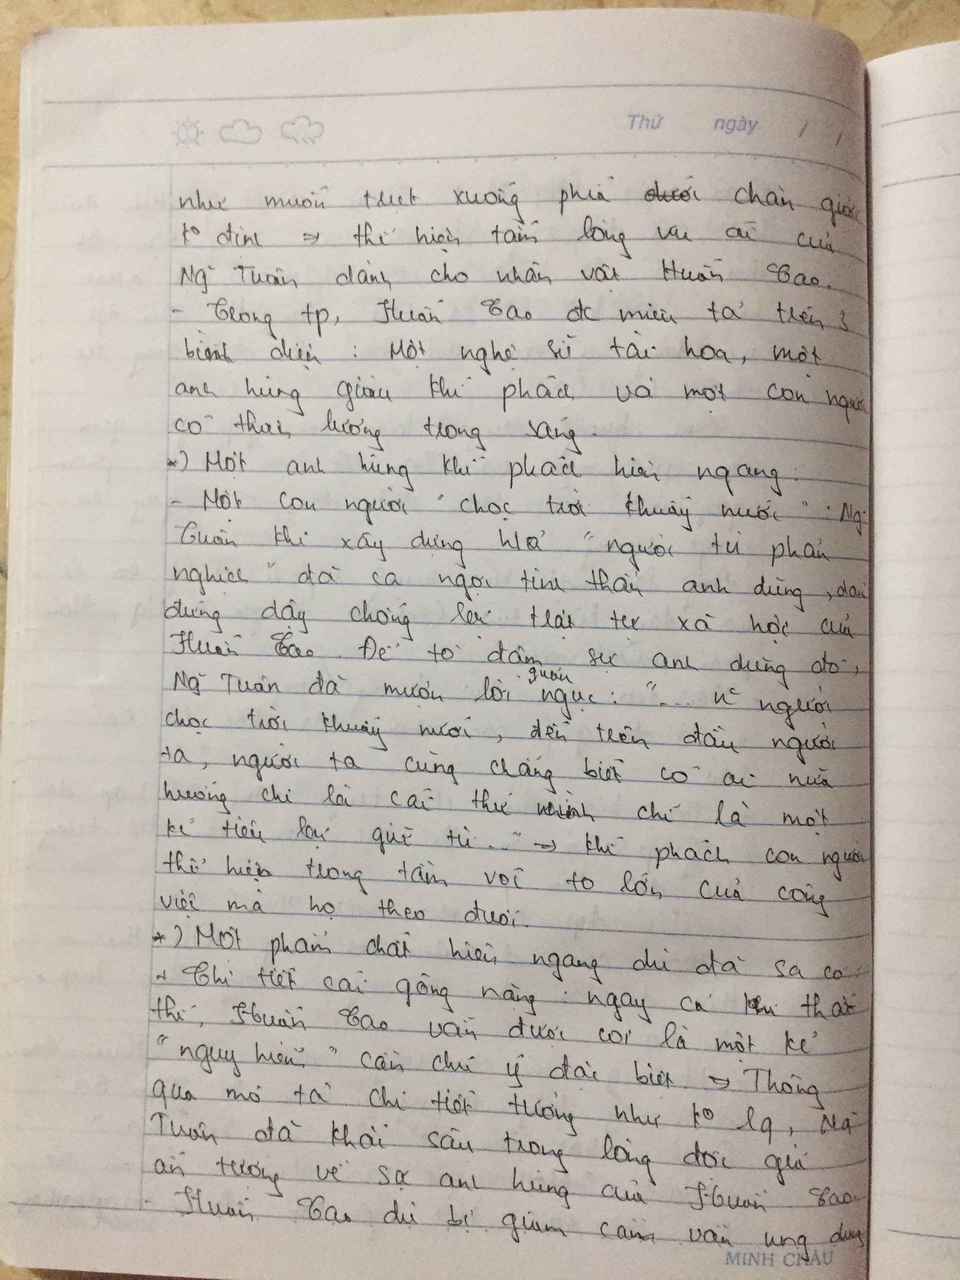 Thứ ngày / /
như muốn trút xuống phía dưới chân giặc
k° định => thể hiện tấm lòng ưu ái của
Ng̃ Tuân dành cho nhân vật Huấn Cao.
- Trong tp, Huấn Cao đc miêu tả trên 3
bình diện : Một nghệ sĩ tài hoa, một
anh hùng giàu khí phách và một con người
có thiên lương trong sáng.
*) Một anh hùng khí phách hiên ngang :
- Một con người " chọc trời khuấy nước " : Ng̃
Tuân khi xây dựng h/a " người tử phản
nghịch " đã ca ngợi tinh thần anh dũng, dám
đứng dậy chống lại trật tự xã hội của
Huấn Cao. Để tô đậm sự anh dũng đó,
Ng̃ Tuân đã mượn lời quản ngục : "... nc̃ người
chọc trời khuấy nước, đến trên đầu người
ta, người ta cũng chẳng biết có ai nữa
huống chi là cái thứ mình chỉ là một
kẻ tiểu lại giữ tù..." -> khí phách con người
thể hiện trong tầm vóc to lớn của công
việc mà họ theo đuổi.
*) Một phẩm chất hiên ngang dù đã sa cơ :
+ Chi tiết cái gông nặng : ngay cả khi thất
thế, Huấn Cao vẫn được coi là một kẻ
" nguy hiểm " cần chú ý đặc biệt => Thông
qua mô tả chi tiết tưởng như k° lạ, Ng̃
Tuân đã khắc sâu trong lòng độc giả
ấn tượng về sự anh hùng của Huấn Cao.
- Huấn Cao dù bị giam cầm vẫn ung dung
MINH CHÂU